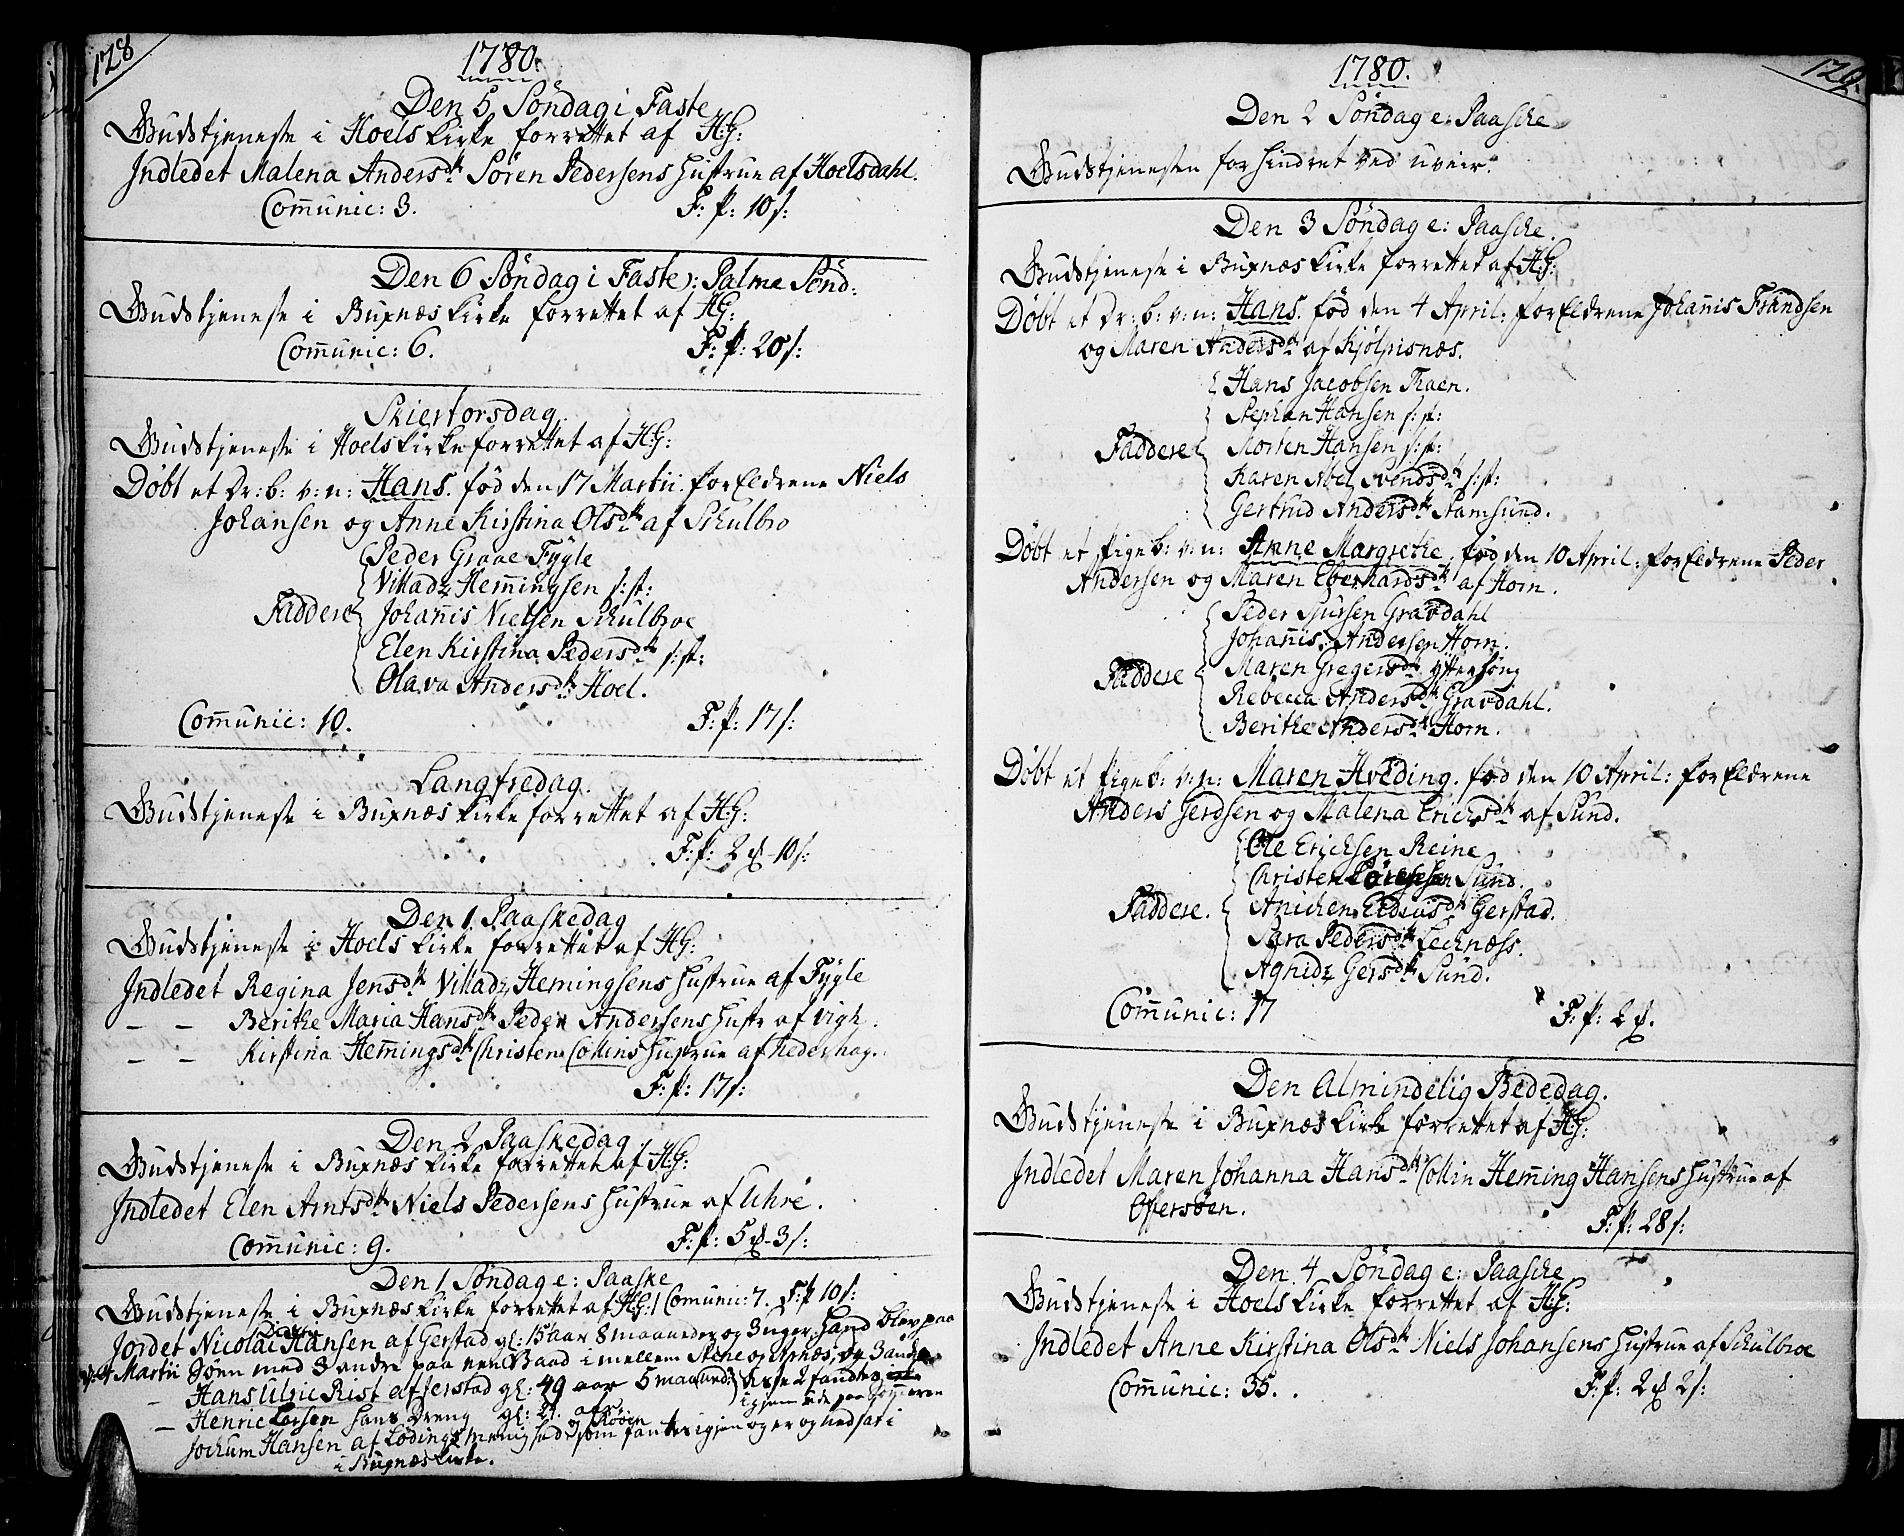 128
1780.
Den 5 Søndag i Faste
Gudstjeneste i Hoels Kirke forrettet af H:G:
Indledet Malena Andersdtr Søren Pedersens Hustrue af Hoelsdahl.
Com̄unic: 3. F: P: 10 s:
Den 6 Søndag i Faste ɔ: Palme Sönd:
Gudstjeneste i Buxnæs Kirke forrettet af H:G:
Com̄unic: 6. F: P: 20 s:
Skiertorsdag
Gudstjeneste i Hoels Kirke forrettet af H:G:
Døbt et Dr: b: v: n: Hans. fød den 17 Martii. forældrene Niels
Johansen og Anne Kirstina Olsdtr af Schulbro
Peder Graae Fygle
Villadz Hem̄ingsen s: st:
Faddere Johan̄is Nielsen Schulbroe
Elen Kirstina Pedersdtr s: st:
Olava Andersdtr Hoel.
Com̄unic: 10. F: P: 17 s:
Langfredag.
Gudstjeneste i Buxnæs Kirke forrettet af H:G:
F: P: 2 d 10 s:
Den 1 Paaskedag
Gudstjeneste i Hoels Kirke forrettet af H:G:
Indledet Regina Jensdtr Villadz Hemingsens Hustrue af Fygle
— — Berithe Maria Hansdtr Peder Andersens Hustr af Vigh.
— — Kirstina Hem̄ingsdtr Christen Collins Hustrue af
F: P: 17 s:
Den 2 Paaskedag
Gudstjeneste i Buxnæs Kirke forrettet af H:G:
Indledet Elen Arntsdtr Niels Pedersens Hustrue af Uhre.
Com̄unic: 9. F: P: 5 d 3 s:
Den 1 Søndag e: Paaske
Gudstjeneste i Buxnæs Kirke forrettet af H:G: Com̄unic: 7. F: P 10 s:
Jordet Nicolai Hansen af Gerstad gl: 15 aar 8 maaneder og 3 uger, hand blev paa
Martii Søen med 3 andre paa een Baad i mellem
Hans Ulric Rist af Jerstad gl: 49 aar 5 maaned: disse 2 fandtes
— Henric Larsen hans Dreng gl: 21 aar
Jochum Hansen af Lødings menighed som fantes igjen og er og nedsat i
i Buxnæs Kirke.
129.
1780.
Den 2 Søndag e: Paasche
Gudstjenesten forhindret ved uveir.
Den 3 Søndag e: Paasche
Gudstjeneste i Buxnæs Kirke forrettet af H:G:
Døbt et Dr: b: v: n: Hans. fød den 4 April: forældrene Johan̄is Frandsen
og Maren Andersdtr af Kjølpisnæs.
Hans Jacobsen Thaen.
Stephan Hansen s: st:
Faddere Morten Hansen s: st:
Karen Abel Svendsdtr s: st:
Gertrud Andersdtr Stamsund.
Døbt et Pigeb: v: n: Anne Margrethe, fød den 10 April: forældrene Peder
Andersen og Maren Eberhardsdtr af Horn.
Peder Siursen Gravdahl
Johan̄is Andersen Horn.
Faddere Maren Gregersdtr
Rebecca Andersdtr Gravdahl.
Berithe Andersdtr Horn.
Døbt et Pigeb: v: n: Maren Hveding. fød den 10 April: forældrene
Anders Gerdsen og Malena Erichsdtr af Sund.
Ole Erichsen Reine
Christen Sund.
Faddere. Anichen Gerstad.
Sara Pedersdtr Lechnæss.
Agnidz Gersdtr Sund.
Com̄unic: 17 F: P: 2 d.
Den Almindelig Bededag.
Gudstjeneste i Buxnæs Kirke forrettet af H:G:
Indledet Maren Johanna Hansdtr Collin Hem̄ing Hansens Hustrue af
Offersøen.
F: P: 28 s:
Den 4 Søndag e: Paasche
Gudstjeneste i Hoels Kirke forrettet af H:G:
Indledet Anne Kirstina Olsdtr Niels Johansens Hustrue af Schulbroe
Com̄unic: 35. F: P: 2 d 2 s: